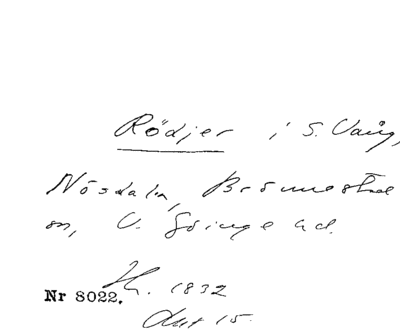 Rödjer i S. Vång,
Nösdala, Brömestad
sn, V. Göinge hd.
Nr 8022. Lk. 1832
Akt 15.